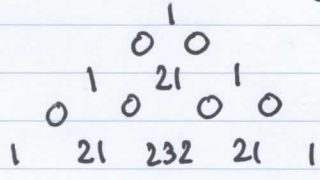 1
0 0
1 21 1
0 0 0 0
1 21 232 21 1